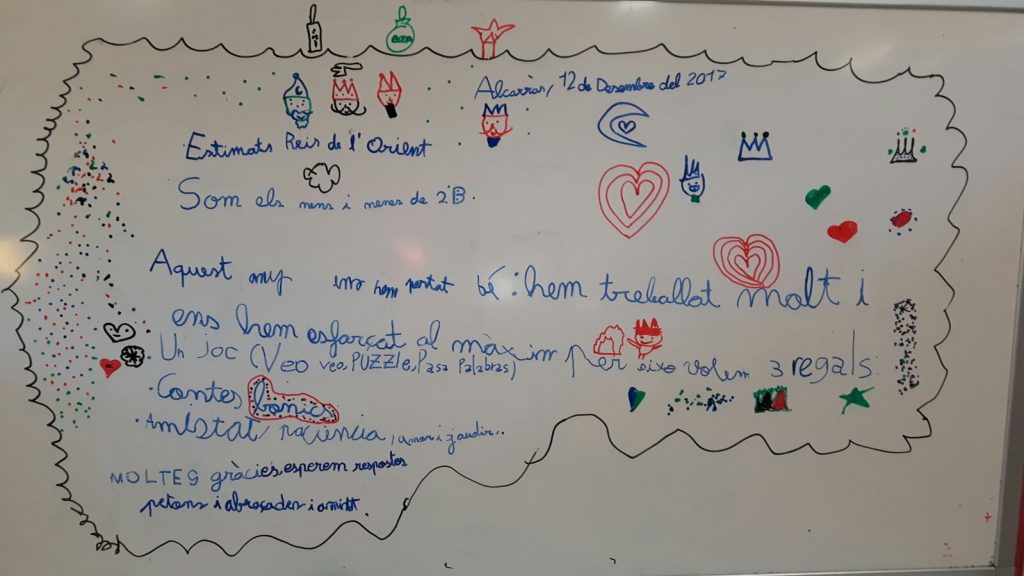 Alcarràs, 12 de Desembre del 2017
Estimats Reis de l'Orient
Som els nens i nenes de 2ºB.
Aquest any ens hem portat bé: hem treballat molt i
ens hem esforçat al màxim per això volem 3 regals:
Un joc (Veo veo, PUZZLE, Pasa Palabras)
·Contes bonics
·Amistat, paciència, amor i gaudir..
MOLTES gràcies, esperem respostes
petons i abraçades i amistat.